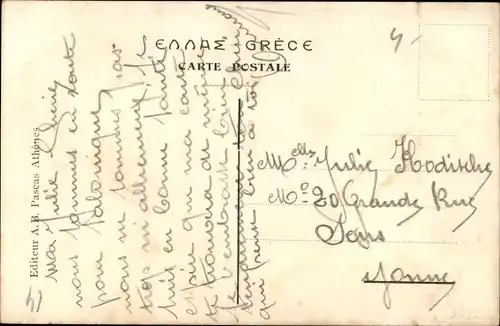 ΕΛΛΑΣ GRÈCE
CARTE POSTALE
Editeur A.B. Pascas Athènes
Ma Julie Chérie
nous sommes en route
pour Salonique
nous ne sommes pas
trop
suis en bonne santé
et que ma carte
te trouvera de même
Je t'embrasse
qui pense bien à toi
Melle Julie Hodische
20 Grande Rue
Sens
Yonne